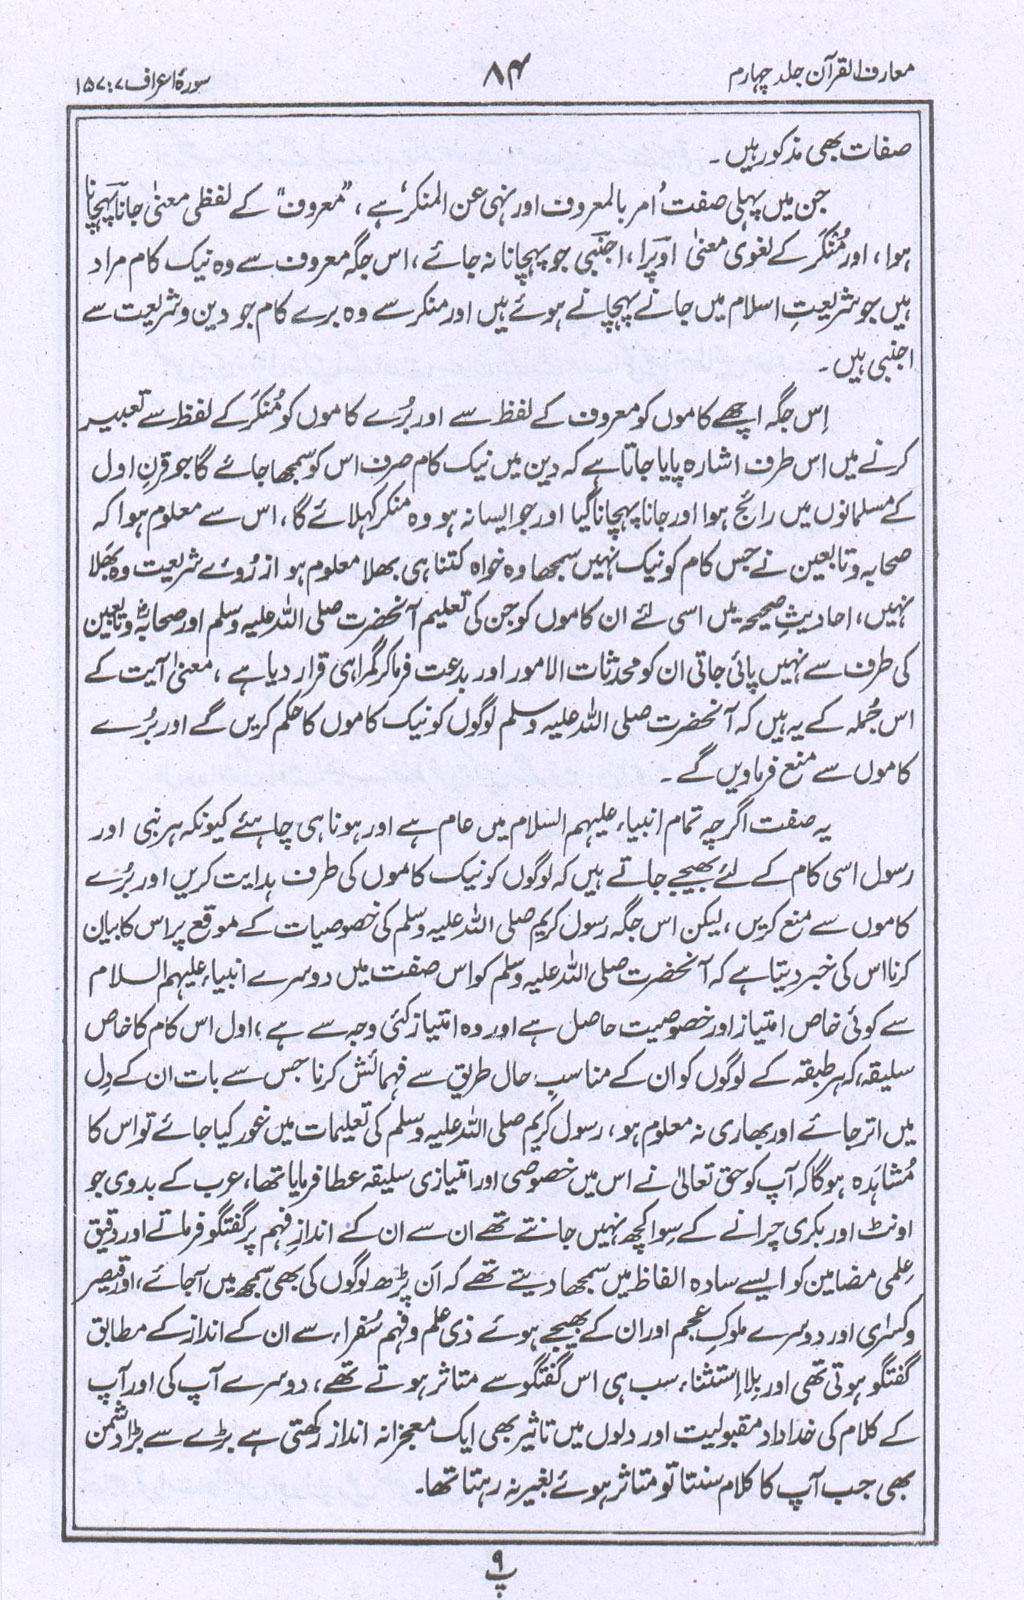 معارف القرآن جلد چہارم
۸۴
سورۂ اعراف ۷: ۱۵۷
صفات بھی مذکور ہیں۔
جن میں پہلی صفت اَمر بالمعروف اور نہی عن المنکر ہے، ”معروف“ کے لفظی معنی جانا پہچانا
ہوا، اور مُنکَر کے لغوی معنیٰ اوپرا، اجنبی جو پہچانا نہ جائے، اس جگہ معروف سے وہ نیک کام مراد
ہیں جو شریعتِ اسلام میں جانے پہچانے ہوئے ہیں اور منکر سے وہ برے کام جو دین و شریعت سے
اجنبی ہیں۔
اِس جگہ اچھے کاموں کو معروف کے لفظ سے اور بُرے کاموں کو مُنکَر کے لفظ سے تعبیر
کرنے میں اس طرف اشارہ پایا جاتا ہے کہ دین میں نیک کام صرف اس کو سمجھا جائے گا جو قرنِ اول
کے مسلمانوں میں رائج ہوا اور جانا پہچانا گیا اور جو ایسا نہ ہو وہ منکر کہلائے گا، اس سے معلوم ہوا کہ
صحابہ و تابعین نے جس کام کو نیک نہیں سمجھا وہ خواہ کتنا ہی بھلا معلوم ہو از رُوئے شریعت وہ بھَلا
نہیں، احادیثِ صحیحہ میں اسی لئے ان کاموں کو جن کی تعلیم آنحضرت صلی اللہ علیہ وسلم اور صحابہؓ و تابعین
کی طرف سے نہیں پائی جاتی ان کو محدثات الامور اور بدعت فرما کر گمراہی قرار دیا ہے، معنیٰ آیت کے
اس جُملہ کے یہ ہیں کہ آنحضرت صلی اللہ علیہ وسلم لوگوں کو نیک کاموں کا حکم کریں گے اور بُرے
کاموں سے منع فرماویں گے۔
یہ صفت اگرچہ تمام انبیاء علیہم السلام میں عام ہے اور ہونا ہی چاہئے کیونکہ ہر نبی اور
رسول اسی کام کے لئے بھیجے جاتے ہیں کہ لوگوں کو نیک کاموں کی طرف ہدایت کریں اور بُرے
کاموں سے منع کریں، لیکن اس جگہ رسول کریم صلی اللہ علیہ وسلم کی خصوصیات کے موقع پر اس کا بیان
کرنا اس کی خبر دیتا ہے کہ آنحضرت صلی اللہ علیہ وسلم کو اس صفت میں دوسرے انبیاء علیہم السلام
سے کوئی خاص امتیاز اور خصوصیت حاصل ہے اور وہ امتیاز کئی وجہ سے ہے، اول اس کام کا خاص
سلیقہ، کہ ہر طبقہ کے لوگوں کو ان کے مناسبِ حال طریق سے فہمائش کرنا جس سے بات ان کے دِل
میں اتر جائے اور بھاری نہ معلوم ہو، رسول کریم صلی اللہ علیہ وسلم کی تعلیمات میں غور کیا جائے تو اس کا
مُشاہَدہ ہوگا کہ آپ کو حق تعالیٰ نے اس میں خصوصی اور امتیازی سلیقہ عطا فرمایا تھا، عرب کے بدوی جو
اونٹ اور بکری چرانے کے سِوا کچھ نہیں جانتے تھے ان سے ان کے اندازِ فہم پر گفتگو فرماتے اور دقیق
عِلمی مضامین کو ایسے سادہ الفاظ میں سمجھا دیتے تھے کہ اَن پڑھ لوگوں کی بھی سمجھ میں آجائے، اور قیصر
و کسرٰی اور دوسرے ملوکِ عجم اور ان کے بھیجے ہوئے ذی علم و فہم سُفراء سے ان کے انداز کے مطابق
گفتگو ہوتی تھی اور بِلا اِستثناء سب ہی اس گفتگو سے متاثر ہوتے تھے، دوسرے آپ کی اور آپ
کے کلام کی خداداد مقبولیت اور دلوں میں تاثیر بھی ایک معجزانہ انداز رکھتی ہے بڑے سے بڑا دشمن
بھی جب آپ کا کلام سنتا تو متاثر ہوئے بغیر نہ رہتا تھا۔
۹
پ